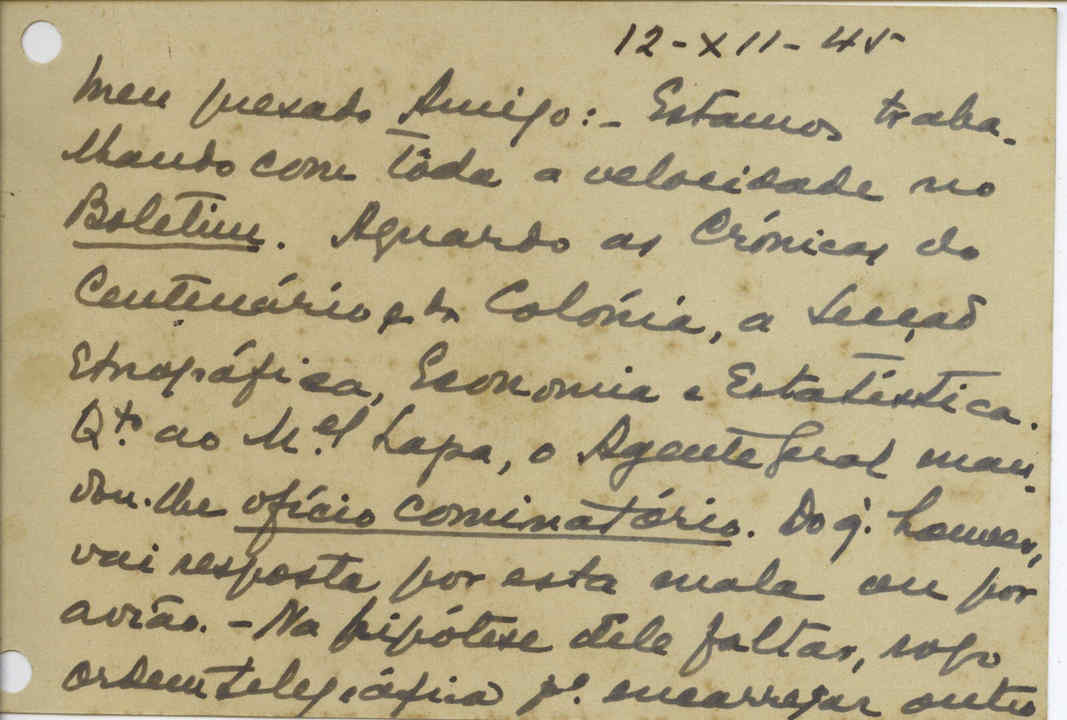 12-XII-45
Meu presado Amigo:- Estamos traba-
lhando com tôda a velocidade no
Boletim. Aguardo as Crónicas do
Centenário e da Colónia, a Secção
Etnográfica, Economia e Estatística.
Qto. ao M.el Lapa, o Agente Geral man-
dou-lhe ofício cominatório. Do q. houver,
vai resposta por esta mala ou por
avião. - Na hipótese dele faltar, rogo
ordem telegráfica pª. encarregar outro